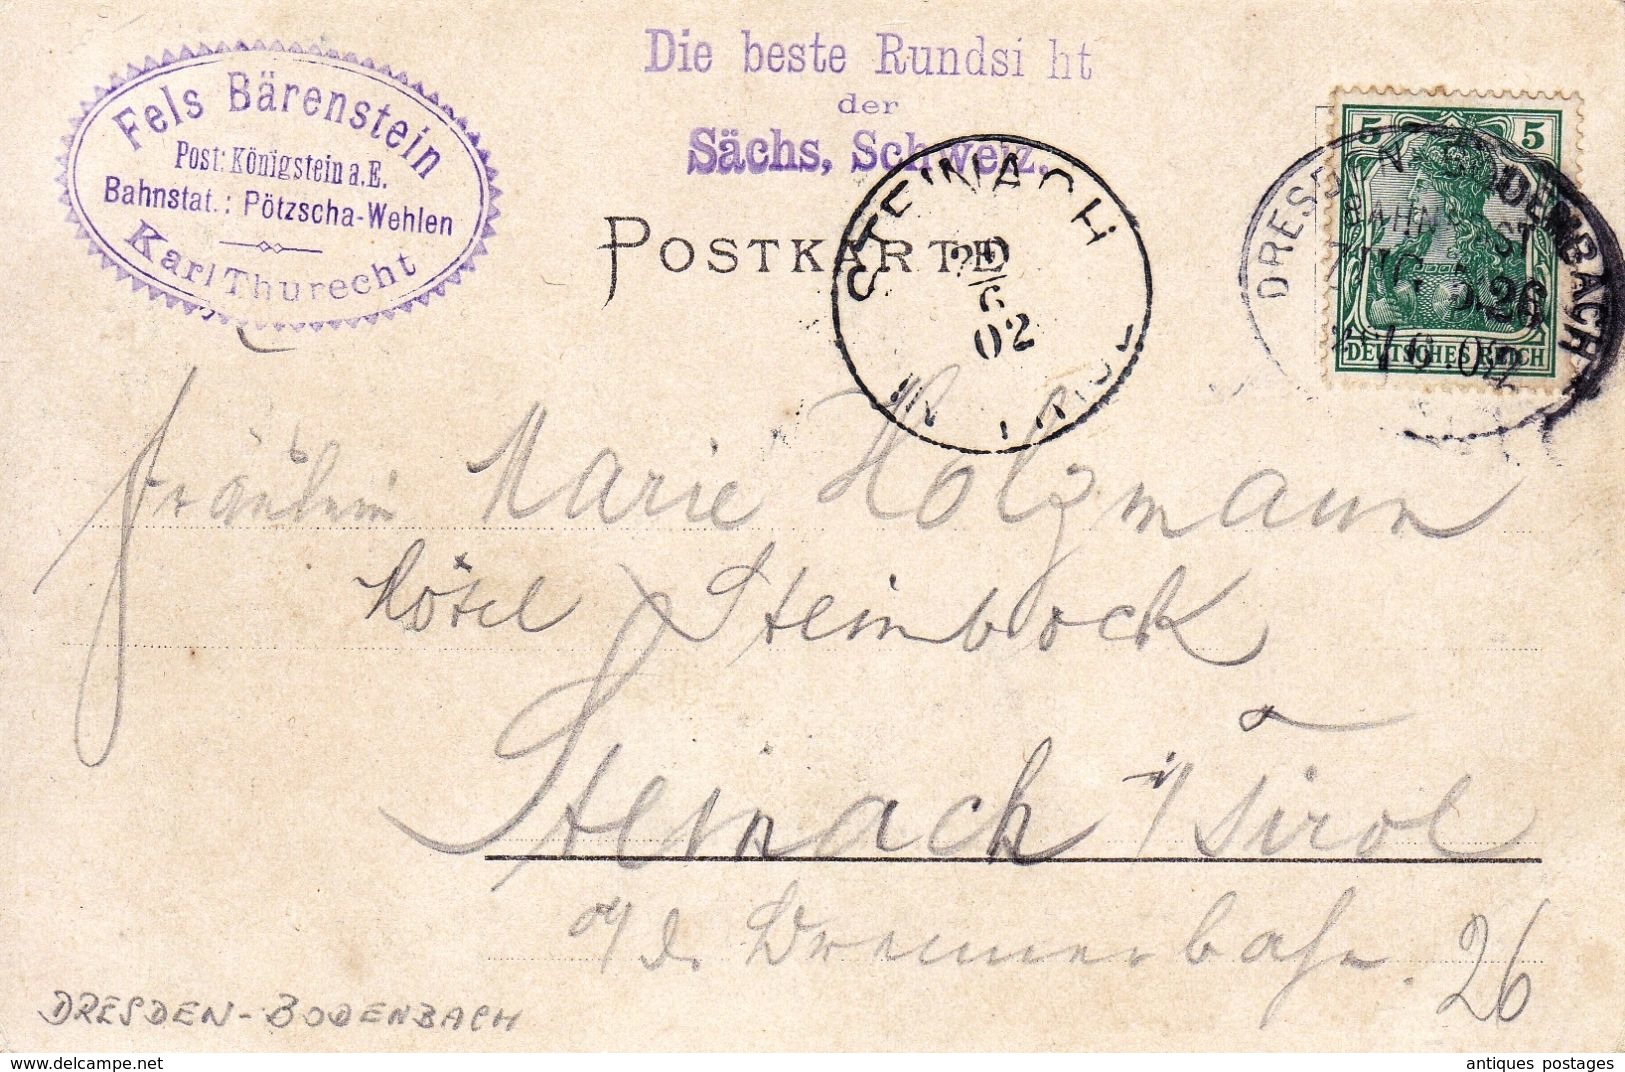 Fels Bärenstein
Post: Königstein a.E.
Bahnstat.: Pötzscha-Wehlen
Karl Thurecht
Die beste Rundsi ht
der
Sächs. Schweiz.
POSTKARTE
STEINACH
29/6
02
IN TIROL
5 5
DEUTSCHES REICH
DRESDEN BODENBACH
BAHNPOST
ZUG 5.26
6.02
Fräulein Marie Holzmann
Hôtel Steinbock
Steinach i/Tirol
a/d. Brennerbahn.
26
DRESDEN-BODENBACH
www.delcampe.net
antiques postages